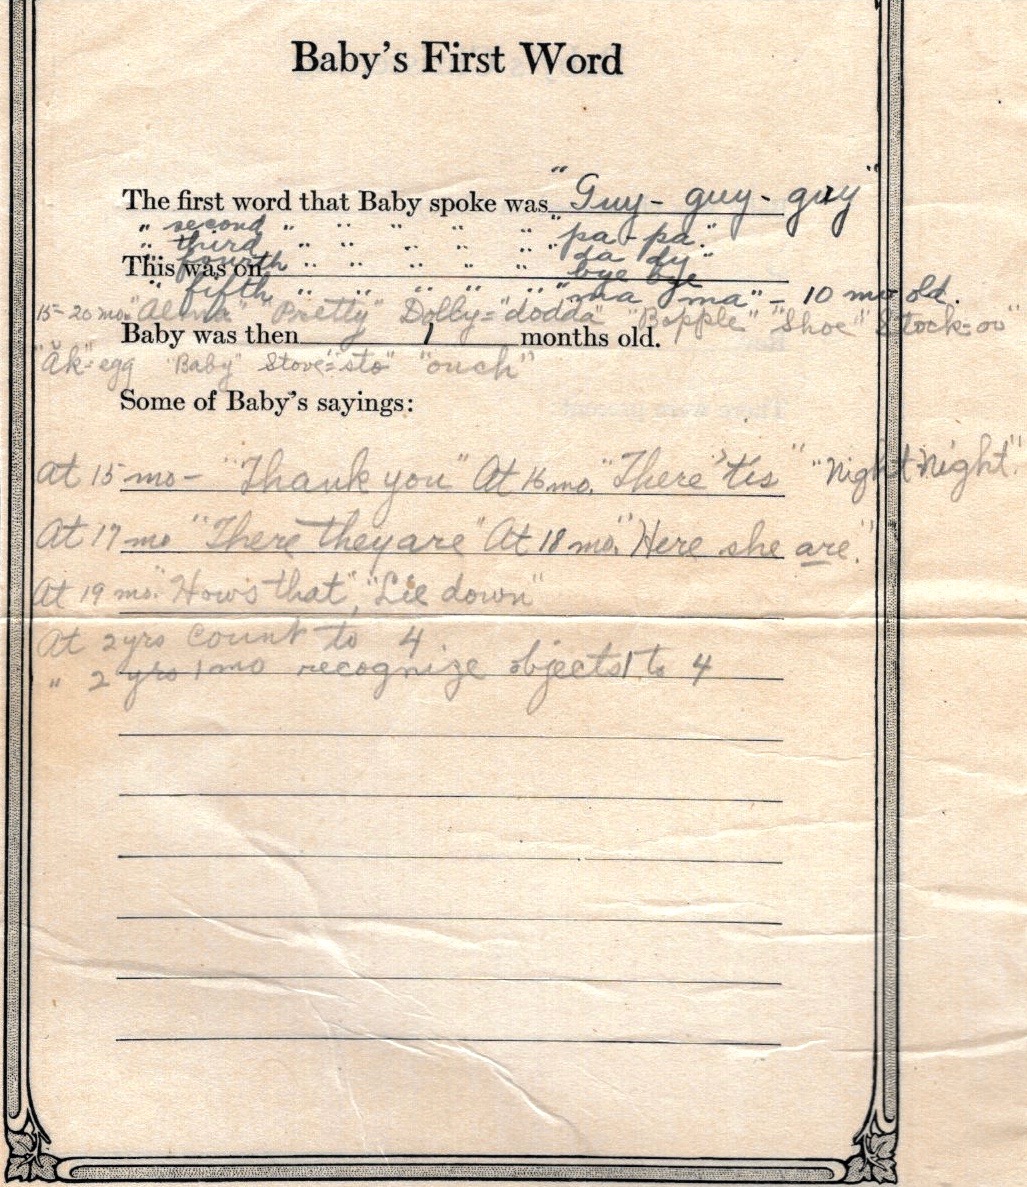 Baby's First Word
The first word that Baby spoke was "Guy - guy - guy"
" second " " " " " "pa - pa."
" third " " " " " "da dy"
This was on
fourth " " " " " bye bye
" fifth " " " " " "ma ma" - 10 mo old.
15-20 mo. "Pretty" Dolly = "dodda" "Bopple" "Shoe" Stock = oo"
Baby was then 1 months old.
"Ăk" = egg "Baby" Stove = "sto" "ouch"
Some of Baby's sayings:
At 15 mo - "Thank you" At 16 mo. "There 'tis" "Night night"
At 17 mo "There they are" At 18 mo. "Here she are."
At 19 mo. "How's that", "Lie down"
At 2 yrs count to 4
" 2 yrs 1 mo recognize objects 1 to 4